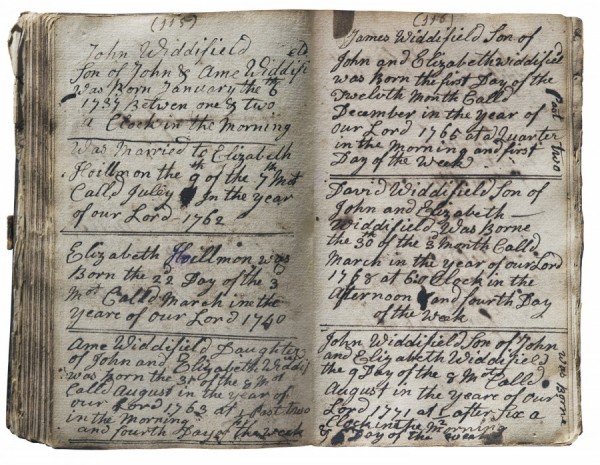 (115)
John Widdifield
Son of John & Ame Widdifield
was Born January the 6
1737 Betwen one & two
a Clock in the Morning
Was Married to Elizabeth
Hoillm on the 9th of the 7th Mot
Calld Julley In the year
of our Lord 1762
Elizabeth Hoillmon was
Born the 22 Day of the 3
Mot Calld March in the
yeare of our Lord 1740
Ame Widdifield Daughter
of John and Elizabeth Widdifi
was Born the 3rd of the 8 Mot
Calld August in the year of
our Lord 1763 at past two
in the Morning
and fourth Day of the week
(116)
James Widdifield Son of
John and Elizabeth widdifield
was Born the first Day of the
Twelvth Month Calld
December in the year of
our Lord 1765 at a Quarter
Past two
in the Morning and first
Day of the Week
David Widdifield Son of
John and Elizabeth
Widdifield Was Borne
the 30th of the 3 Month Calld
March in the year of our Lord
1768 at 6 Clock in the
Afternoon and fourth Day
of the Week
John Widdifield Son of John
and Elizabeth Widdifield
was Borne
the 9 Day of the 8 Moth Calld
August in the yeare of our
Lord 1771 at after six a
Clock in the Morning
& Day of the week